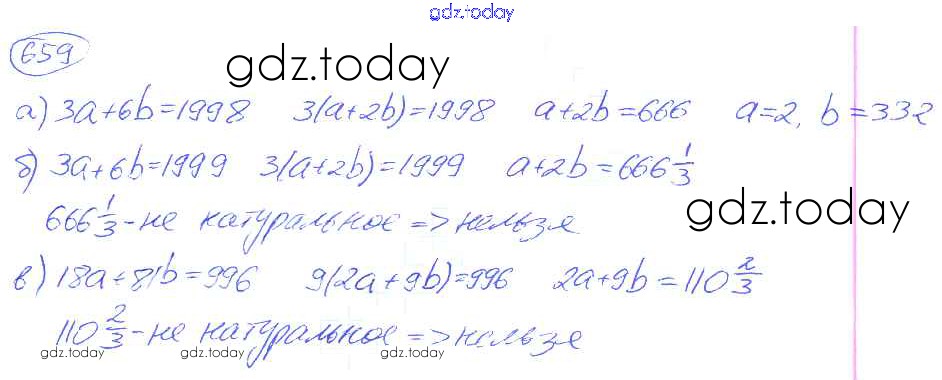 gdz.today
659
gdz.today
а) 3a+6b=1998 3(a+2b)=1998 a+2b=666 a=2, b=332
б) 3a+6b=1999 3(a+2b)=1999 a+2b=666 1/3
666 1/3 - не натуральное => нельзя
gdz.today
в) 18a+81b=996 9(2a+9b)=996 2a+9b=110 2/3
110 2/3 - не натуральное => нельзя
gdz.today gdz.today gdz.today gdz.today